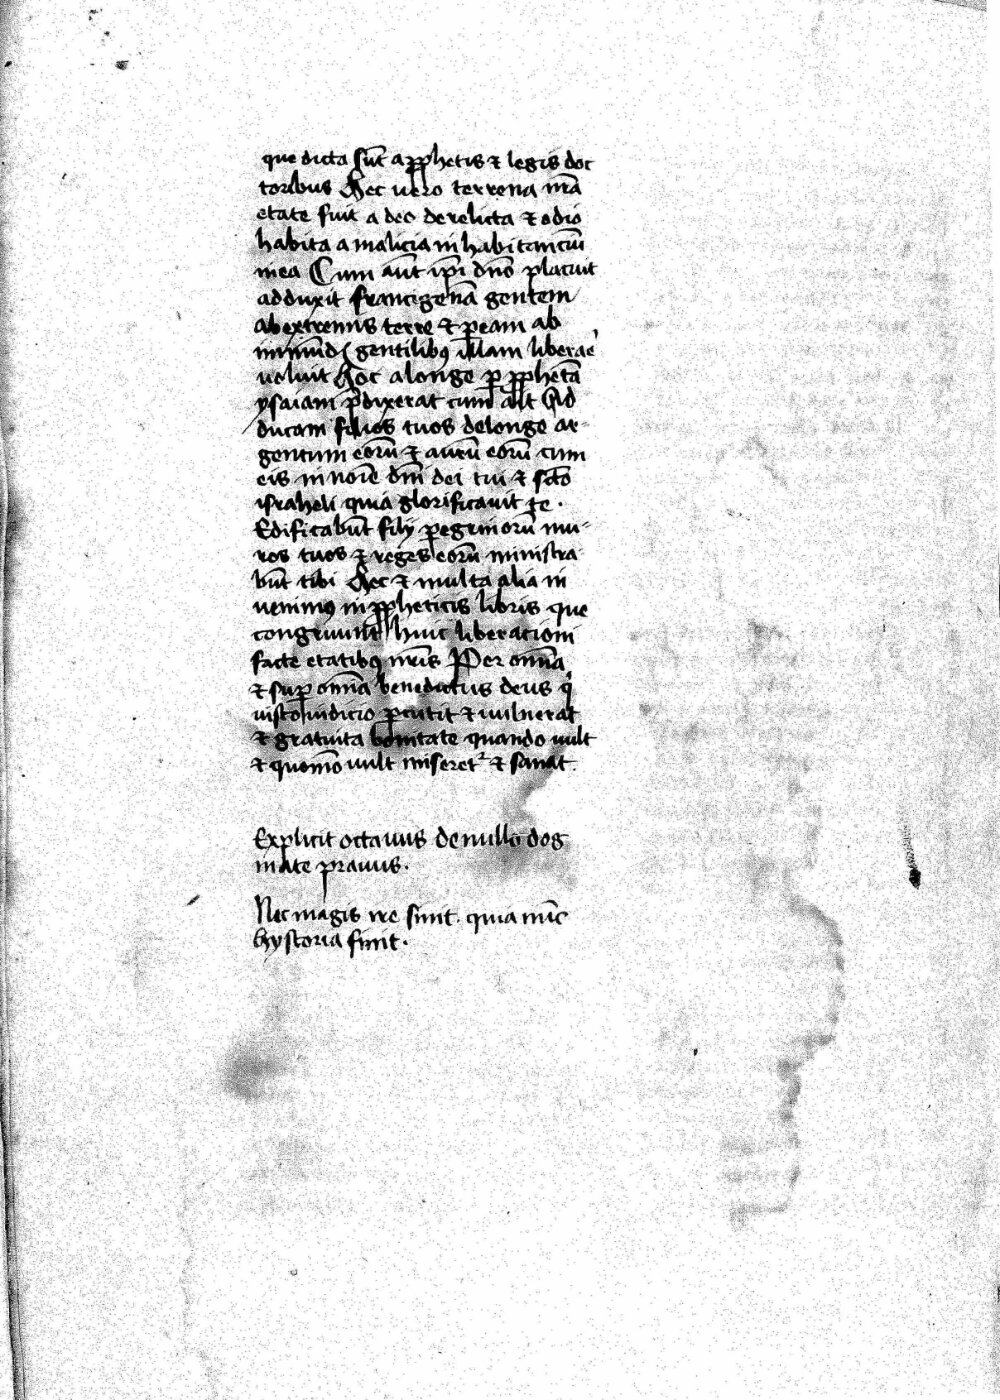 que dicta sūt a ꝓphetis ⁊ legis doc
toribus Hec uero terrena nr̄a
etate fuit a deo derelicta ⁊ odio
habita a malicia in habitanciū
in ea Cum aūt ip̄i dn̄o placuit
adduxit francigenā gentem
ab extremis terre ⁊ ꝑ eam ab
gentilibꝰ illam liberare
uoluit Hoc a longe ꝑ ꝓphetā
ysaiam p̄dixerat cum ait Ad
ducam filios tuos de longe ar-
gentum eorū ⁊ aurū eorū cum
eis in noīe dn̄i dei tui ⁊ sc̄to
israheli quia glorificauit te.
Edificabūt filij ꝑegrinorū mu-
ros tuos ⁊ reges eorū ministra
būt tibi Hec ⁊ multa alia in
uenimꝰ in ꝓpheticis libris que
congruunt huic liberationi
facte etatibꝰ nr̄is Per om̄ia
⁊ suꝑ om̄ia benedictus deus q̇
iusto iudicio ꝑcutit ⁊ uulnerat
⁊ gratuita bonitate quando uult
⁊ quom̄o uult miseret᷑ ⁊ sanat.
Explicit octauus de nullo dog
mate prauus.
Nec magis ire sinit. quia nūc
hystoria finit.